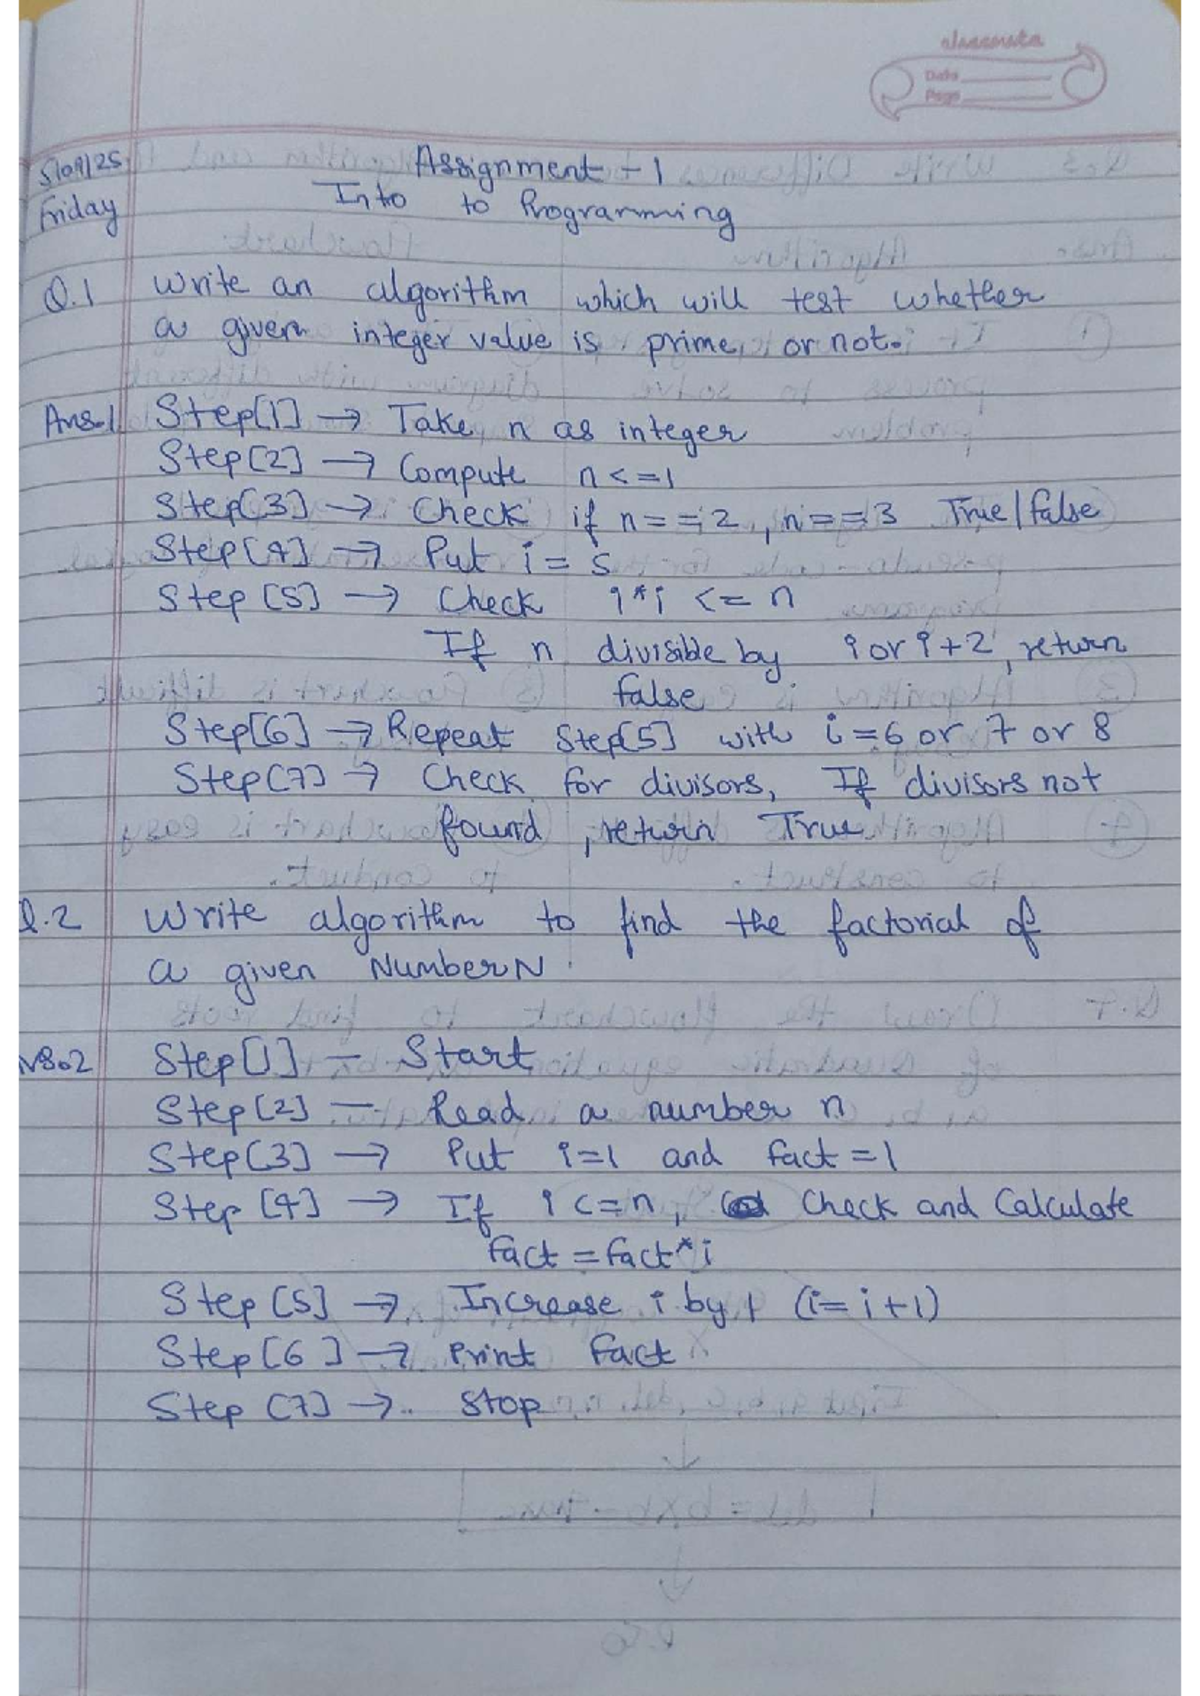 classmate
Date
Page
5/09/25
Friday
Assignment - 1
Into to Programming
Q.1 Write an algorithm which will test whether
a given integer value is prime or not.
Ans.1 Step[1] → Take n as integer
Step[2] → Compute n <= 1
Step[3] → Check if n == 2, n == 3 True/false
Step[4] → Put i = 5
Step [5] → Check i*i <= n
If n divisible by i or i+2, return
false
Step[6] → Repeat Step[5] with i=6 or 7 or 8
Step[7] → Check for divisors, If divisors not
found, return True
Q.2 Write algorithm to find the factorial of
a given Number N
ns.2 Step[1] — Start
Step[2] — Read a number n
Step[3] → Put i=1 and fact =1
Step [4] → If i <= n, Check and Calculate
fact = fact*i
Step [5] → Increase i by 1 (i= i+1)
Step [6] → Print fact
Step [7] → Stop